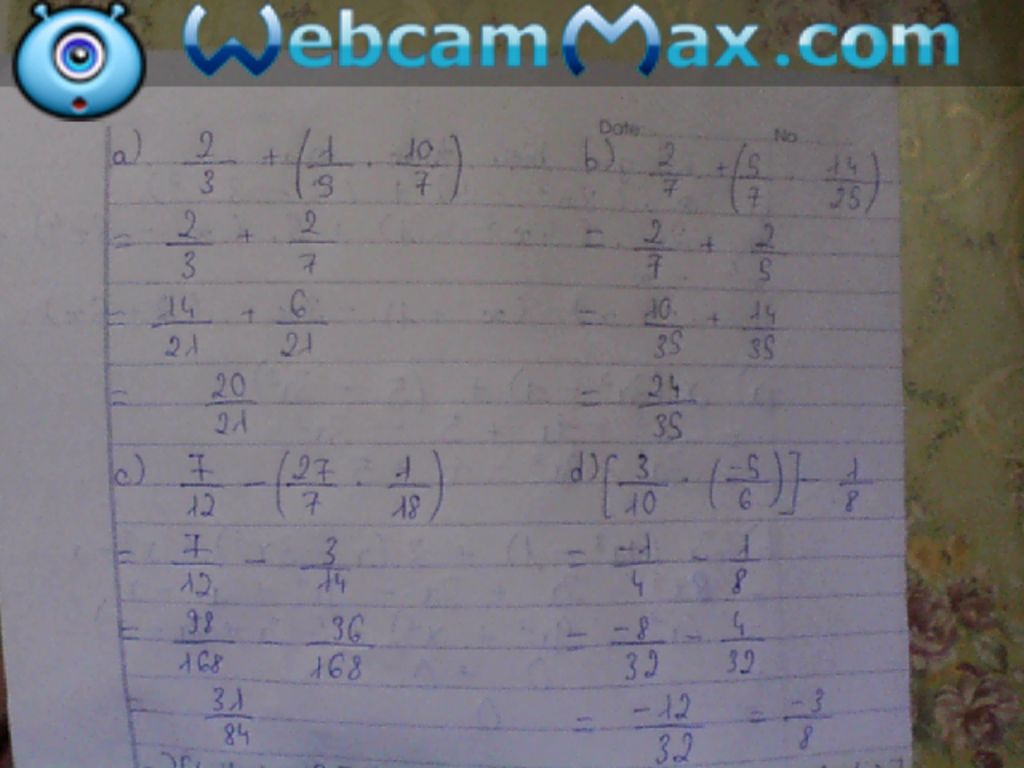 WebcamMax.com
Date No
a) 2/3 + (1/5 · 10/7)
= 2/3 + 2/7
= 14/21 + 6/21
= 20/21
b) 2/7 + (5/7 · 14/25)
= 2/7 + 2/5
= 10/35 + 14/35
= 24/35
c) 7/12 - (27/7 · 1/18)
= 7/12 - 3/14
= 98/168 - 36/168
= 31/84
d) [3/10 · (-5/6)] - 1/8
= -1/4 - 1/8
= -8/32 - 4/32
= -12/32 = -3/8